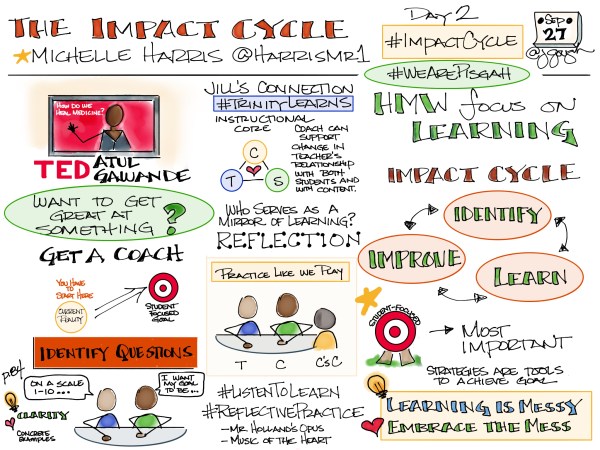 The Impact Cycle
Michelle Harris @HarrisMr1
Day 2
#ImpactCycle
Sep
27
#WeArePisgah
How do we
heal medicine?
TED Atul
Gawande
Want to get
great at
something?
Get a Coach
You have
to
start here
Current
Reality
Student
Focused
Goal
Identify Questions
p.84
On a scale
1-10...
I want
my goal
to be...
Clarity
Concrete
Examples
Jill's Connection
#TrinityLearns
Instructional
Core
C
T
S
Coach can
support
change in
teacher's
relationship
with both
students and
with content.
Who serves as a
mirror of learning?
Reflection
Practice Like We Play
T
C
C's C
#ListenToLearn
#ReflectivePractice
- Mr. Holland's Opus
- Music of the Heart
HMW focus on
Learning
Impact Cycle
Identify
Improve
Learn
Student-Focused
Most
Important
Strategies are tools
to achieve goal
Learning is Messy
Embrace the Mess